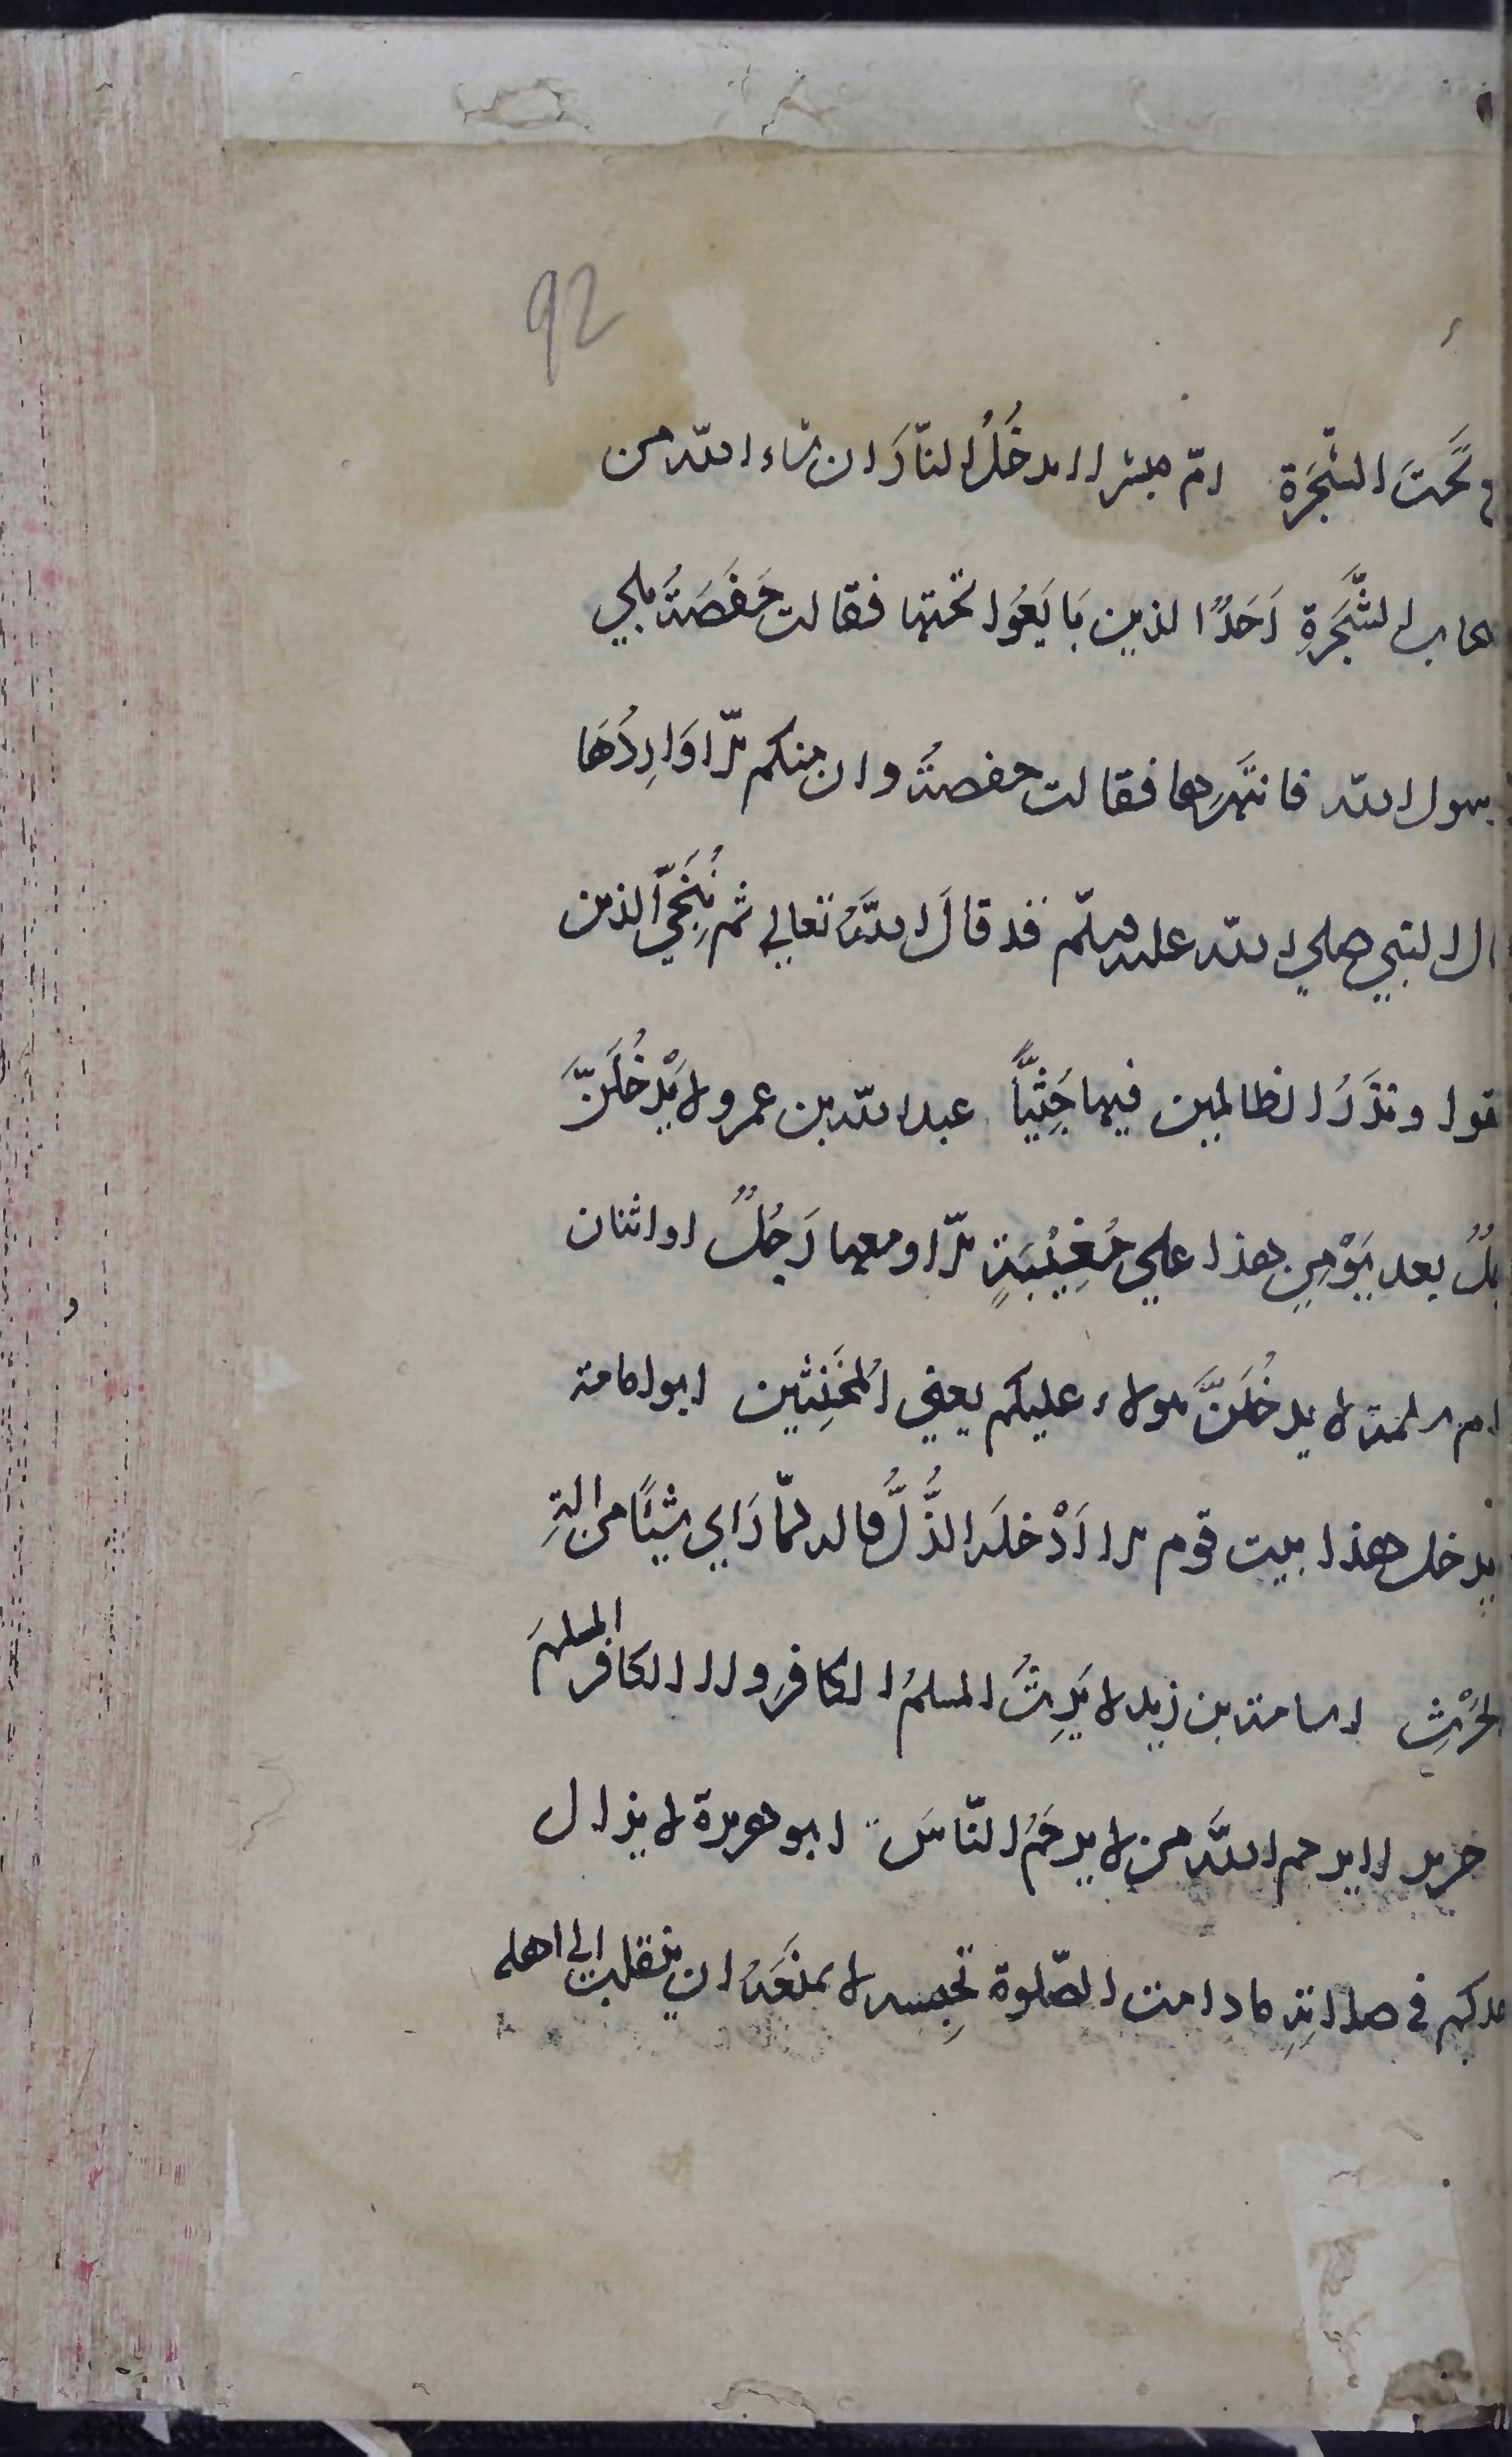 92
تحَتَ الشَّجَرَة امّ مبشر لا يدخُلُ النّارَ ان شاء الله من
اب الشَّجَرَةِ اَحَدٌ الذين بَايَعُوا تحتها فقالت حَفصَةُ بلي
رسول الله فانتَهَرها فقالت حفصةُ وان منكم الّا وَارِدُهَا
ال النبي صلي الله عليه وسلّم قد قالَ اللهُ تعالي ثم نُنَجِّي الذين
تقوا ونذَرُ الظالمين فيها جِثِيّاً عبد الله بن عمرو لا يَدْخُلَنَّ
جلُ بعد يَوْمِي هذا علي مُغِيْبَةٍ الّا ومعها رَجُلٌ او اثنان
ام سلمة لا يدخُلَنَّ هولاء عليكم يعني المُخَنِثين ابو امامة
يدخل هذا بيت قوم الا اَدْخلَه الذُّلَّ قاله لمّا رَاي شيئًا من الةِ
الحَرْثِ اسامة بن زيد لا يَرِثُ المسلمُ الكافرِ ولا الكافر المسلمَ
جرير لا يرحم اللهُ من لا يرحَمُ النّاسَ ابو هريرة لا يزال
حدكم في صلاتِهِ ما دامت الصّلوة تحبِسه لا يمنَعَهُ ان ينقلب الي اهله